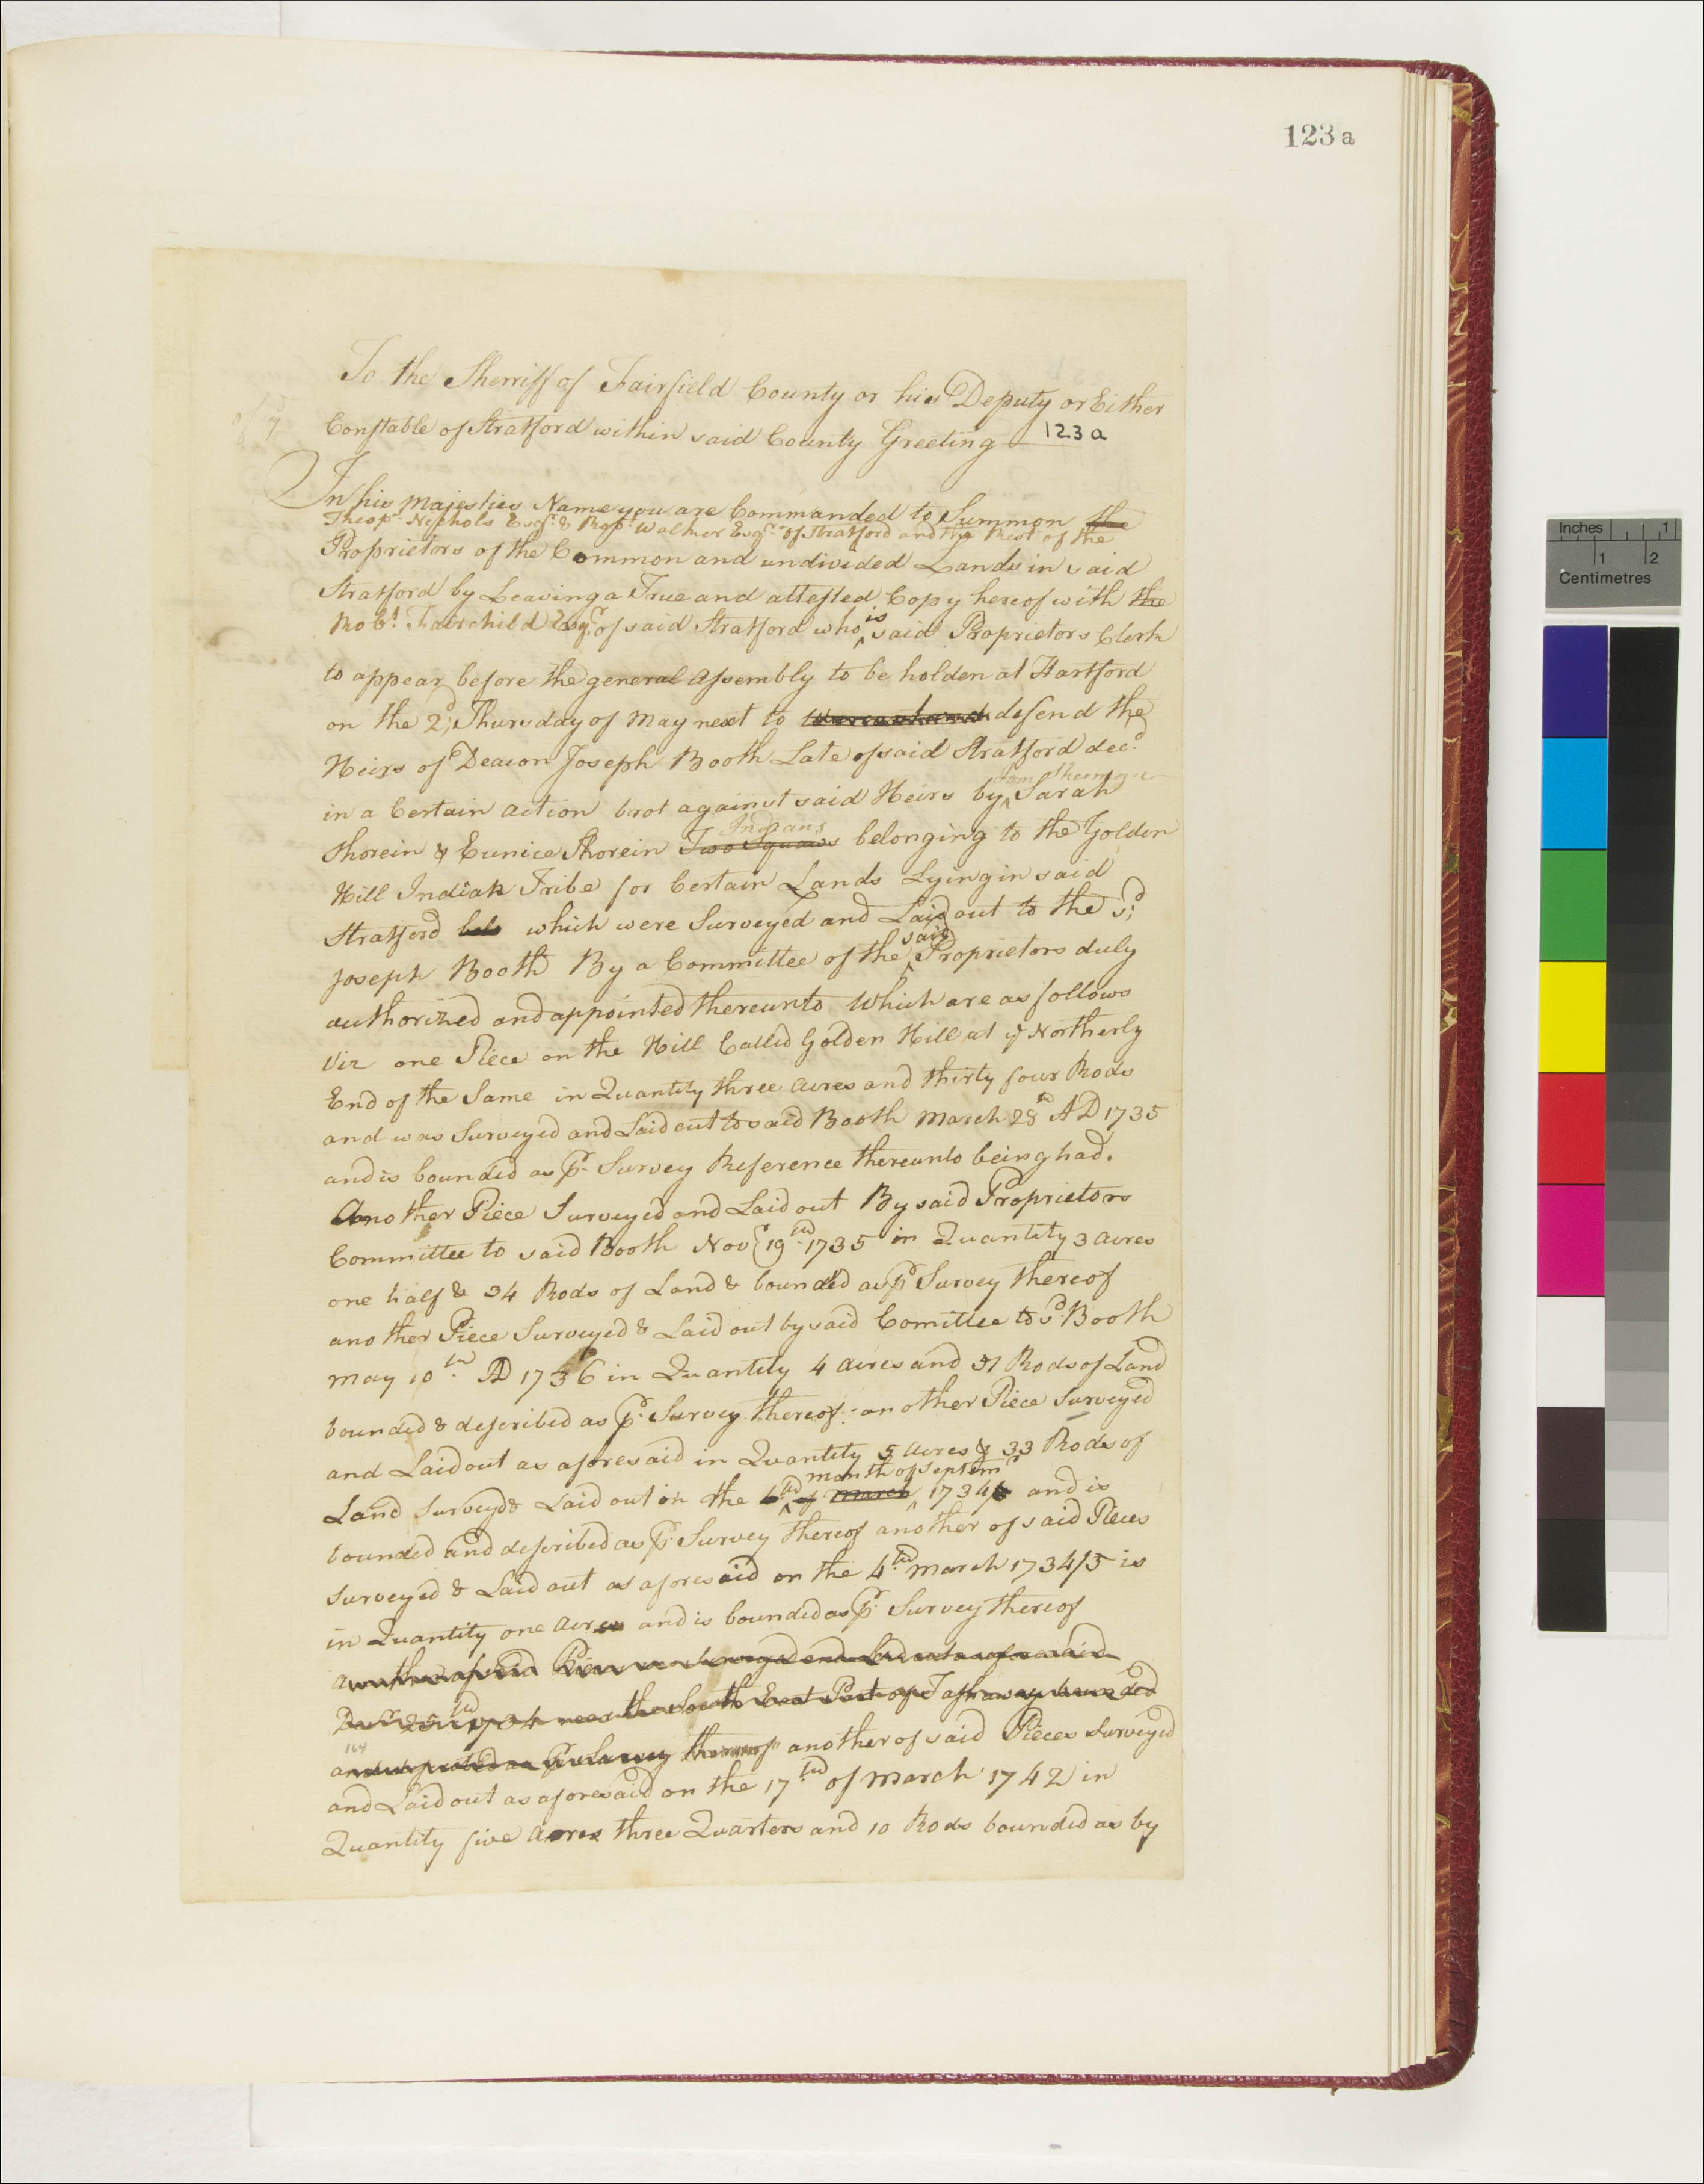 123 a
To the Sherriff of Fairfield County or his Deputy or Either
Constable of Stratford within said County Greeting
123 a
In his Majesties Name you are Commanded to Summon the
Theop.s Nichols Esq.r & Rob.t Walker Esq.r of Stratford and the Rest of the
Proprietors of the Common and undivided Lands in said
Stratford by Leaving a True and attested Copy hereof with the
Rob.t Fairchild Esq.r of said Stratford who is said Proprietors Clerk
to appear before the general Assembly to be holden at Hartford
on the 2.d Thursday of May next to defend the
Heirs of Deacon Joseph Booth Late of said Stratford dec.d
in a Certain action brot against said Heirs by Tom Sherman Sarah
Shorein & Eunice Shorein Two Squaws Indians belonging to the Golden
Hill Indian Tribe for Certain Lands Lying in said
Stratford which were Surveyed and Laid out to the s.d
Joseph Booth By a Committee of the said Proprietors duly
authorized and appointed thereunto Which are as follows
Viz one Piece on the Hill Called Golden Hill at ye Northerly
End of the Same in Quantity three acres and thirty four Rods
and was Surveyed and Laid out to said Booth March 28th AD 1735
and is bounded as pr Survey Reference thereunto being had.
Another Piece Surveyed and Laid out By said Proprietors
Committee to said Booth Nov.r 19th 1735 in Quantity 3 acres
one half & 34 Rods of Land & bounded as pr Survey thereof
another Piece Surveyed & Laid out by said Comittee to s.d Booth
May 10th AD 1736 in Quantity 4 acres and 31 Rods of Land
bounded & described as pr Survey thereof: another Piece Surveyed
and Laid out as aforesaid in Quantity 5 acres & 33 Rods of
month of Septem.r
Land Surveyd & Laid out on the March 1734 and is
bounded and described as pr Survey thereof another of said Pieces
Surveyed & Laid out as aforesaid on the 4th March 1734/5 is
in Quantity one acre and is bounded as pr Survey thereof
another of said Pieces was Surveyed and Laid out as aforesaid
Dec.r 25th 1734 near the South East Part of Tashaway bounded
thereof another of said Pieces Surveyed
and Laid out as aforesaid on the 17th of March 1742 in
Quantity five acres three Quarters and 10 Rods bounded as by
Inches 1
1 2
Centimetres